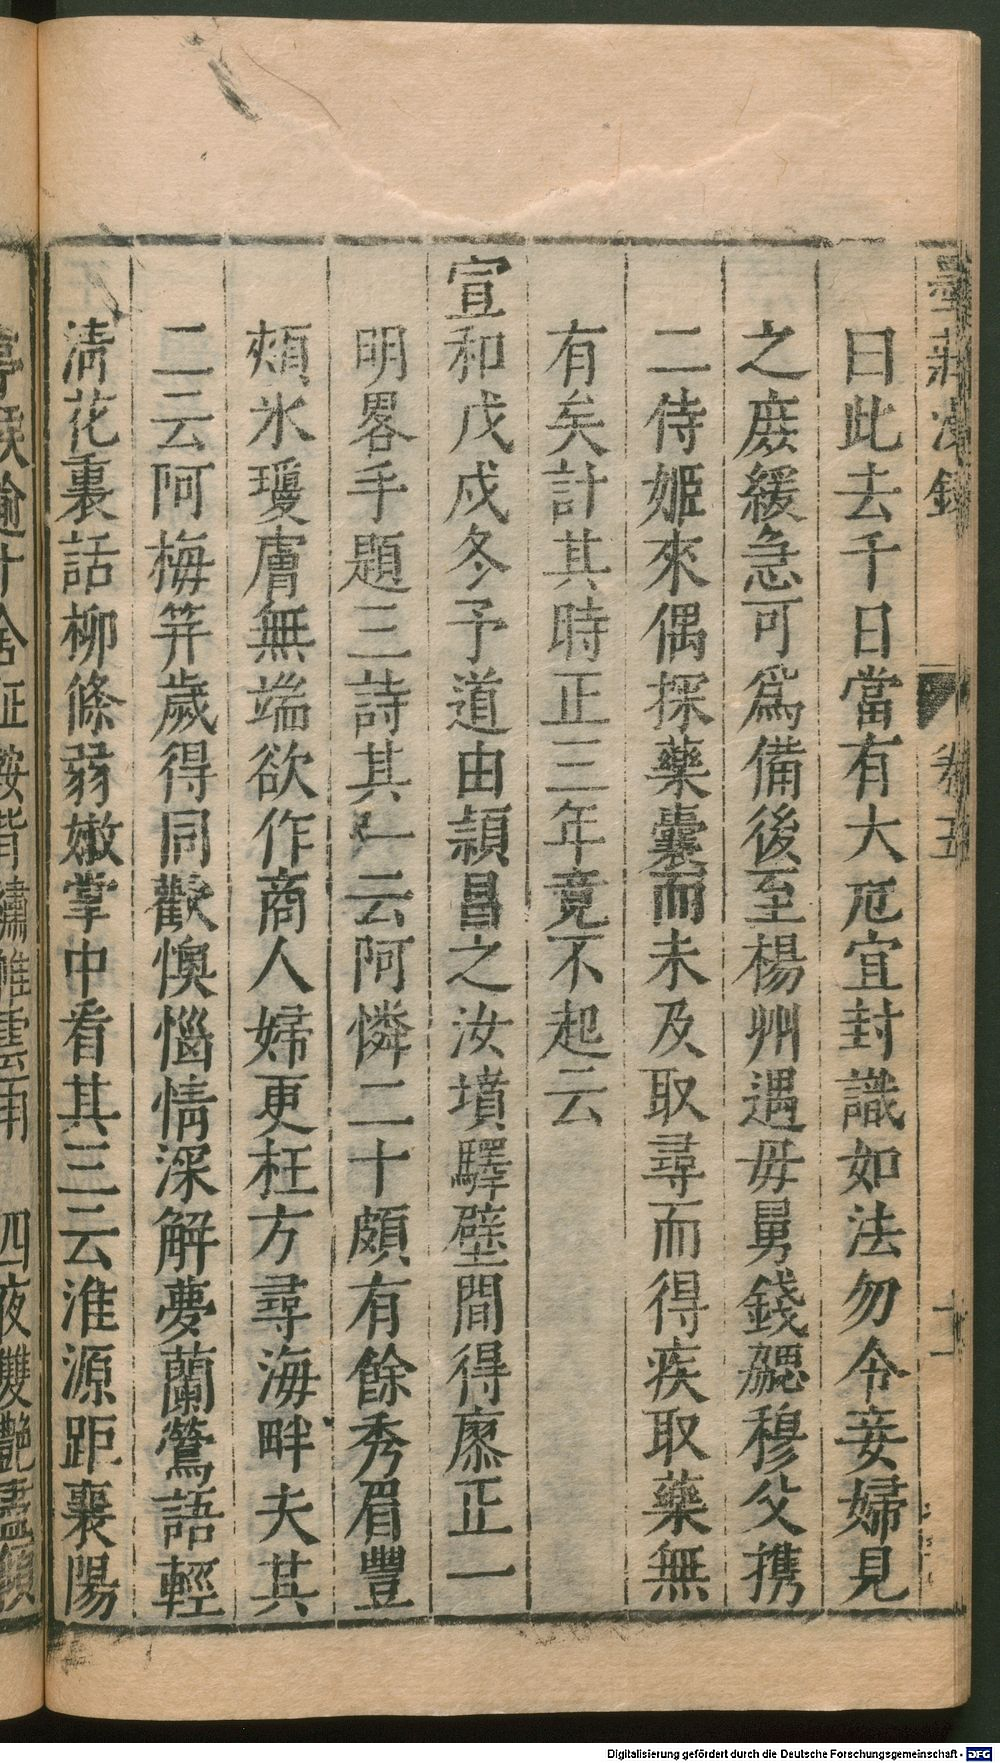 墨莊漫錄 卷五 十一
曰此去千日當有大厄宜封識如法勿令妾婦見
之庶緩急可爲備後至楊州遇毋舅錢勰穆父携
二侍姬來偶探藥囊而未及取尋而得疾取藥無
有矣計其時正三年竟不起云
宣和戊戌冬予道由潁昌之汝墳驛壁間得廖正一
明畧手題三詩其一云阿憐二十頗有餘秀眉豐
頰氷瓊膚無端欲作商人婦更枉方尋海畔夫其
二云阿梅笄歲得同歡懊惱情深解夢蘭鶯語輕
淸花裏話柳條弱嫩掌中看其三云淮源距襄陽
Digitalisierung gefördert durch die Deutsche Forschungsgemeinschaft - DFG